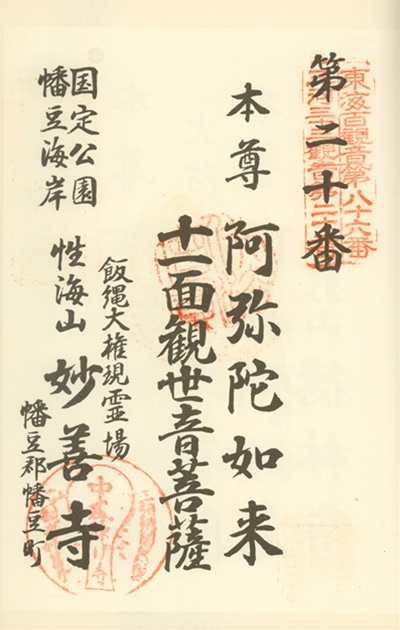 東海百観音第八十六番
第二十番
本尊 阿弥陀如来
十一面観世音菩薩
飯縄大権現霊場
国定公園
幡豆海岸
性海山 妙善寺
幡豆郡幡豆町